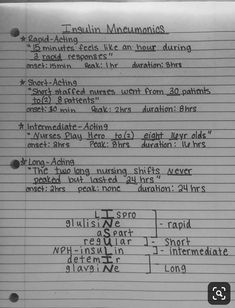 Insulin Mneumonics
★ Rapid-Acting
"15 minutes feels like an hour during
3 rapid responses"
onset: 15min peak: 1hr duration: 3hrs
★ Short-Acting
"Short staffed nurses went from 30 patients
to(2) 8 patients"
onset: 30 min peak: 2hrs duration: 8hrs
★ Intermediate-Acting
"Nurses Play Hero to(2) eight 16yr olds"
onset: 2hrs Peak: 8hrs duration: 16 hrs
★ Long-Acting
"The two long nursing shifts never
peaked but lasted 24 hrs"
onset: 2hrs peak: none duration: 24 hrs
LISpro
glulisiNe - rapid
aSpart
regUlar ]- Short
NPH-insuLin ]- intermediate
detemIr
glargiNe - Long